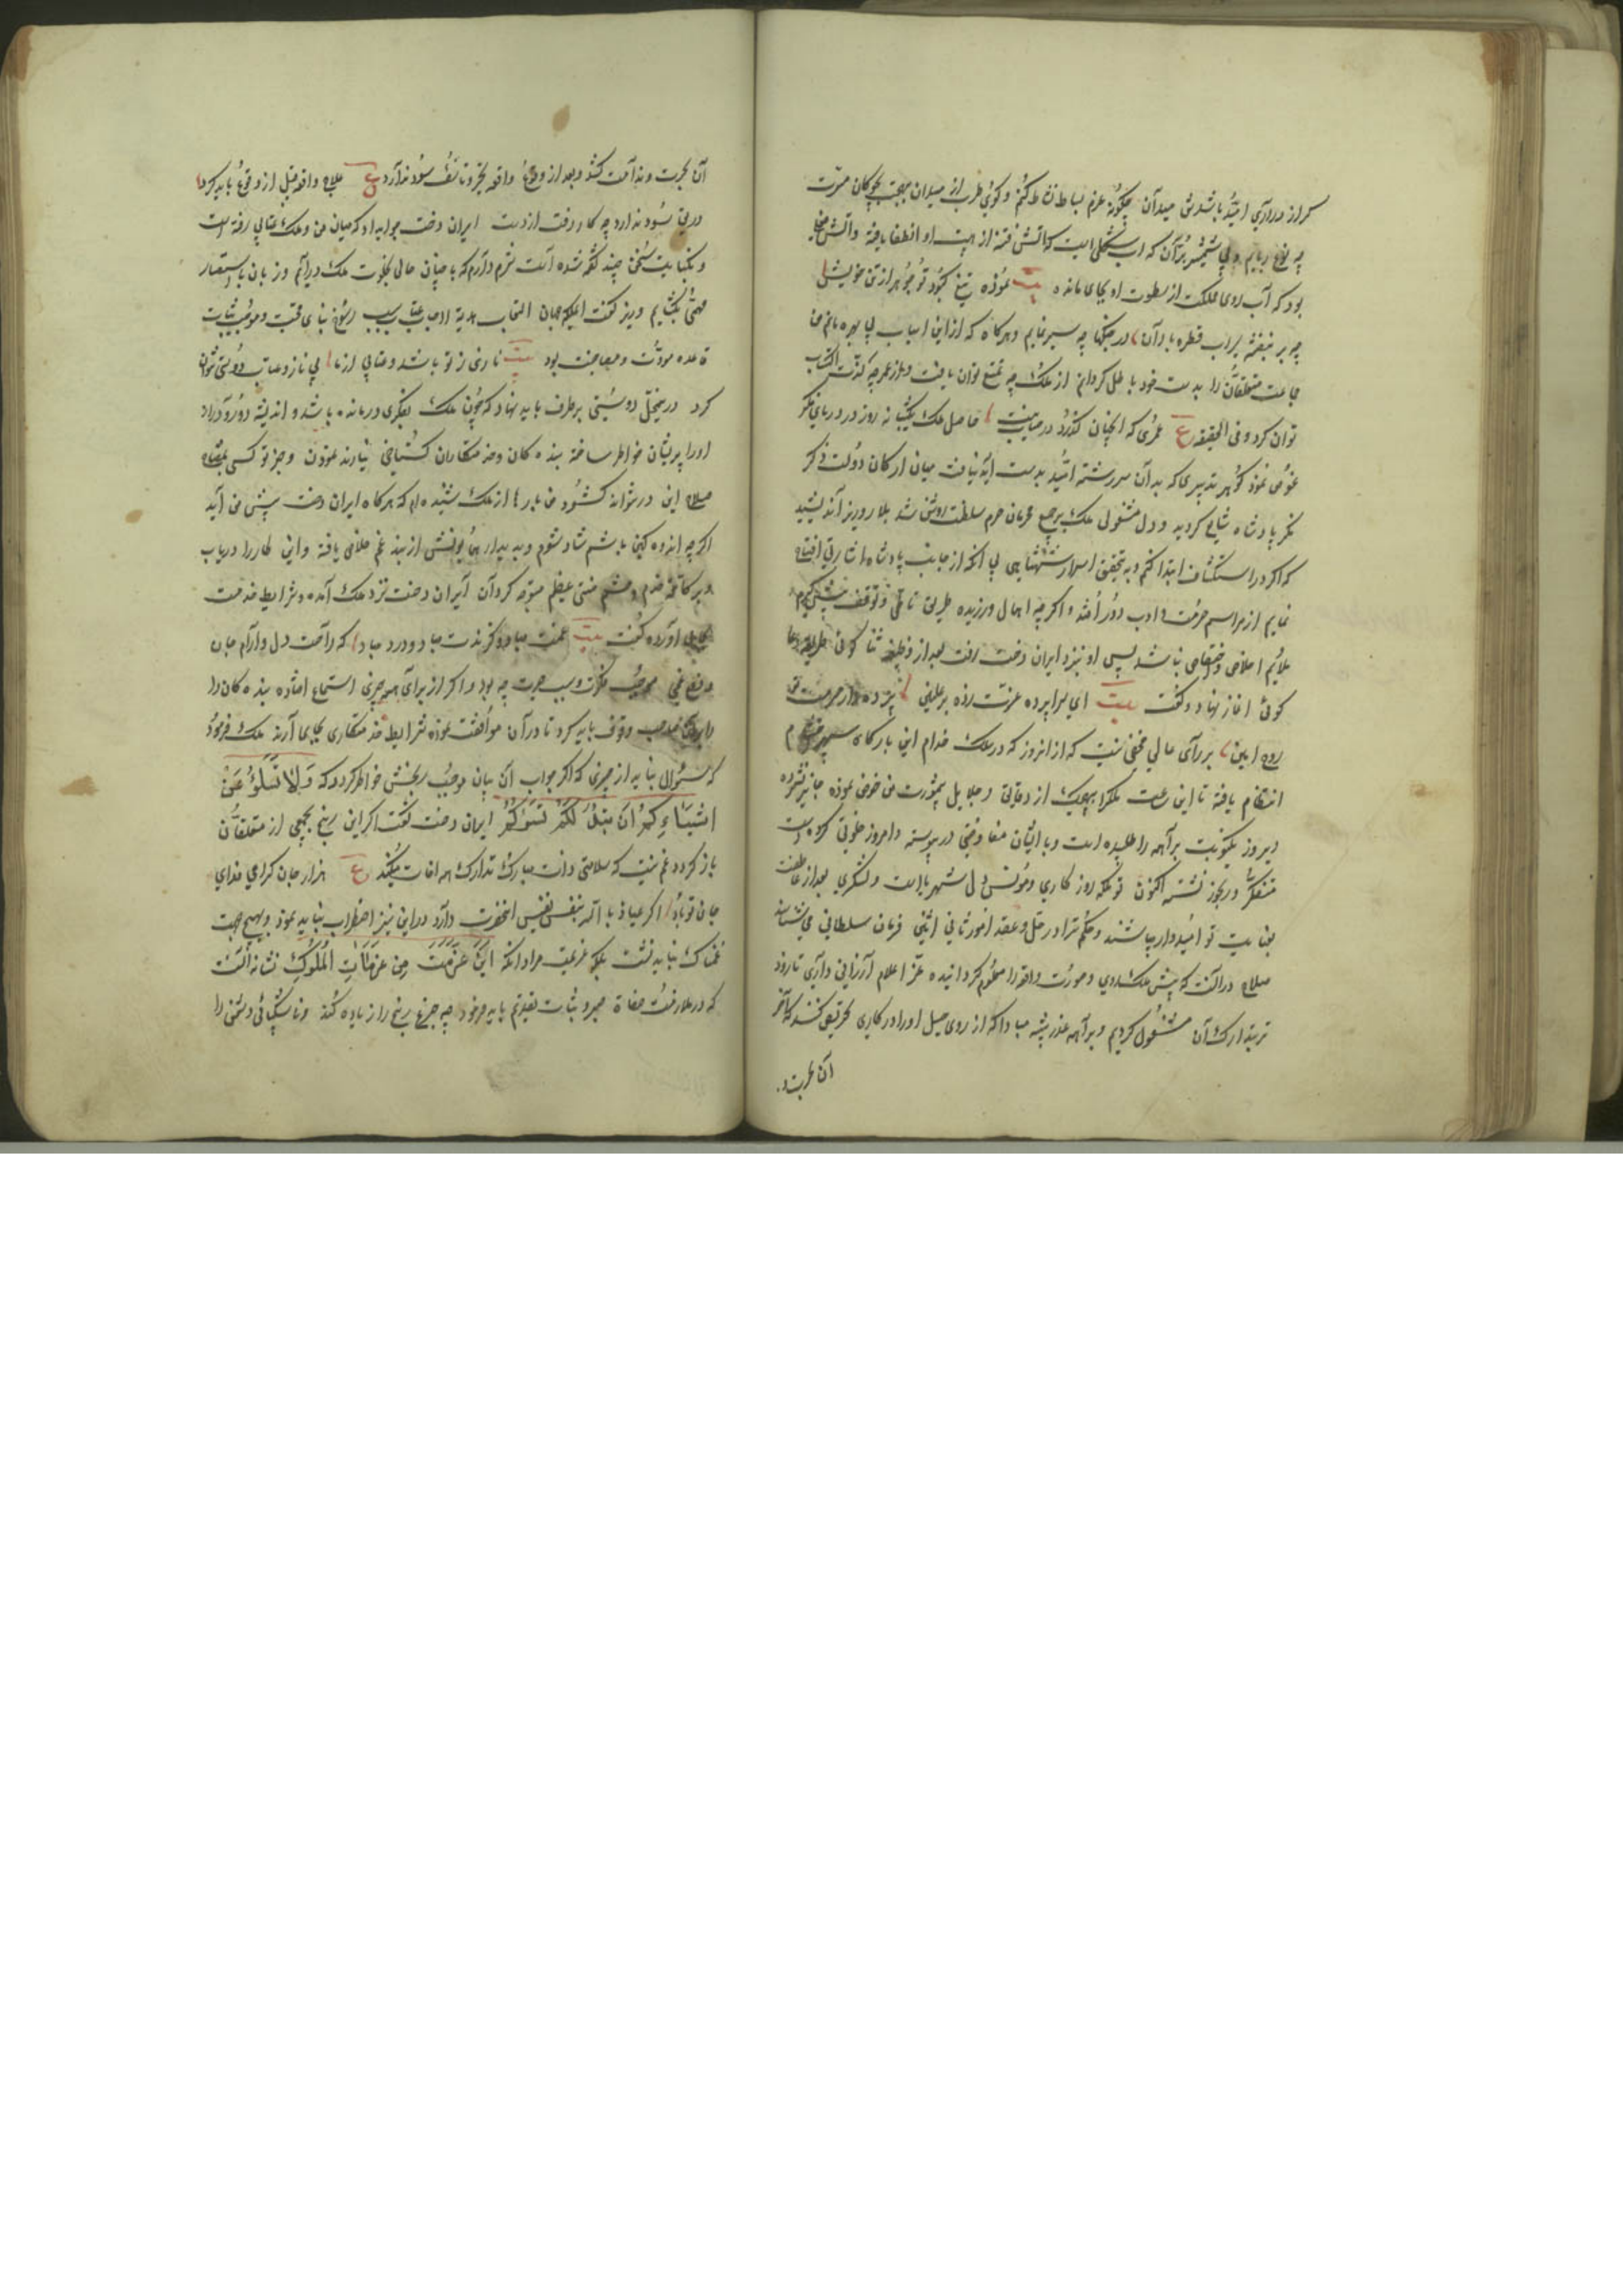 کر از درآری امید باشد من میدان چگونه عزم بساط نشاط کنم و گوی طرب از میدان بهجت بچوگان مسرت
چه نوع ربایم و بی شمشیر بران که آب شکلی است که آتش فتنه از هیبت او انطفا یافته و آتش
بود که آب روی مملکت از سطوت او بجای مانده بیت نموده تیغ کبود تو جوهر از تن خویش
چو بر بنفشه سراب قطره باران در جنگها چه سپر نمایم و هرگاه که از این اسباب بی بهره مانم من
جماعت متعلقان را بدست خود باطل گردانم از ملک چه تمتع توان یافت و از عمر چه لذت اکتساب
توان کرد و فی الحقیقه ع عمری که اینچنان گذرد در حساب نیست حاصل ملک یکشبانه روز در دریای فکر
غوص نمود گوهر تدبیری که بدان سررشته امید بدست آید نیافت میان ارکان دولت ذکر
فکر پادشاه شایع گردید و دل مشغولی ملک بر جمیع محرمان حرم سلطنت روشن شد بلار وزیر اندیشید
که اگر در استکشاف ابتدا کنم و به تحقیق اسرار شهنشاهی بی آنکه از جانب پادشاه اشارتی افتتاح
نمایم از مراسم حرمت و ادب دور افتد و اگرچه اهمال ورزیده طریق تأنی و توقف پیش گیرم
ملایم اخلاص و اختصاص نباشد پس او نیزد ایران دخت رفت بعد از وظیفه ثنا گوئی طریقه دعا
گوئی آغاز نهاد و گفت بیت ای سراپرده عزت زده بر علیین پرده دار حرمت
روح امین بر رای عالی مخفی نیست که از آنروز که در ملک خدام این بارگاه سپهر احتشام
انتظام یافته تا این ساعت ملک را هیچیک از دقایق و جلایل بیمشورت من خوض نموده جایز نشمرده
دیروز یکنوبت براهمه را طلبیده است و با ایشان مفاوضتی در پیوسته و امروز خلوتی کرده است
متفکر و رنجور نشسته اکنون تو ملکه روزگاری و مونس دل شهریار است و لشکری بعد از عاطفت
بعنایت تو امیدوار میباشند و حکم ترا در حل و عقد امور ثانی اثنین فرمان سلطانی می‌شناسند
صلاح در آنست که پیش ملک روی و صورت واقعه را معلوم گردانیده عز اعلام ارزانی داری تا زود
تر بتدارک آن مشغول گردیم و براهمه غدر پیشه مبادا که از روی حیل او را در کاری تحریض کنند که آخر
آن بحسرت و
آن بحسرت و ندامت کشد و بعد از وقوع واقعه تحزر و تأسف سود ندارد ع علاج واقعه قبل از وقوع باید کرد
دریغ سود ندارد چه کار رفت از دست ایران دخت جواب داد که میان من و ملک عتابی رفته است
و بکنایت سخنی چند گفته شده است شرم دارم که با چنان حالی بخلوت ملک درآیم و زبان باستفسار
مهمی بگشایم وزیر گفت ایملکه جهان العتاب هدیة الاحباب عتاب سبب رسوخ بنای محبت و موجب ثبات
قاعده مودت و مصاحبت بود بیت نازی ز تو باشد و عتابی از ما بی ناز و عتاب دوستی نتوان
کرد در محل دوستی برطرف باید نهاد که چون ملک بفکری درمانده باشد و اندیشه دور و دراز
او را پریشان خاطر ساخته بنده کان و خدمتکاران گستاخی نیارند نمودن و جز تو کسی مفتاح
صلاح این در نتواند گشود من بارها از ملک شنیده ام که هرگاه ایران دخت پیش من آید
اگرچه اندوهگین باشم شاد شوم و به دیدار همایونش از بند غم خلاصی یافته و این کار را دریاب
و بر کافه خدم و حشم منتی عظیم متوجه گردان ایران دخت نزد ملک آمده و شرایط خدمت
بجای آورده گفت بیت غمت مباد و گزندت مباد و درد مباد که راحت دل و آرام جان
و دفع غمی موجب فکرت و سبب حیرت چه بود و اگر از برای همه چیزی استماع افتاده بنده کان را
وقوف باید کرد تا در آن موافقت نموده شرایط خدمتکاری بجای آرند ملک فرمود
که سؤال نباید از چیزی که اگر جواب آن بیان موجب رنجش خاطر گردد که وَلَا تَسْئَلُوا عَنْ
اَشْيَاءَ اِنْ تُبْدَ لَكُمْ تَسُؤْكُمْ ایران دخت گفت اگر این رنج بجمعی از متعلقان
باز گردد غم نیست که سلامتی ذات مبارک تدارک همه آفات میکند ع هزار جان گرامی فدای
جان تو باد اگر عیاذ بالله بنفس نفیس آنحضرت دارد در این نیز اضطراب نباید نمود و بهیچ جهت
غمناک نباید نشست بلکه عزیمت مراد آنکه اِنَّ عَزْمَتَ مِنْ عَزَمَاتِ الْمُلُوكِ نشانه است
که در ملازمت صفات صبر و ثبات تقدیم باید فرمود چه جزع رنج را زیاده کند و ناشکیبائی دشمن را